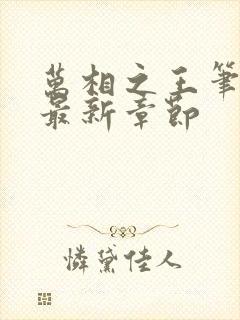 萬相之王筆
最新章節
憐黛佳人